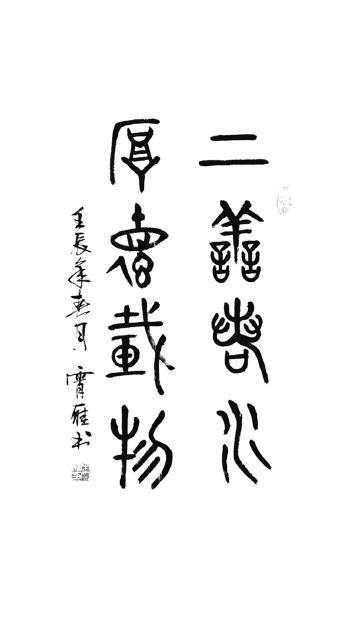 上善若水
厚悳載物
壬辰年春月 霄雁书